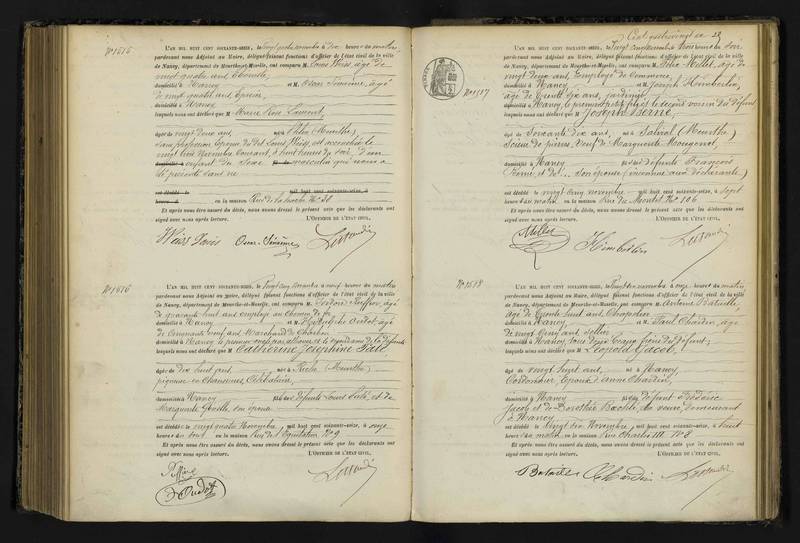 N° 1515
L'AN MIL HUIT CENT SOIXANTE-SEIZE, le Vingt quatre novembre à dix heures du matin,
pardevant nous Adjoint au Maire, délégué faisant fonctions d'officier de l'état civil de la ville
de Nancy, département de Meurthe-et-Moselle, ont comparu M. Louis Weiss, âgé de
vingt quatre ans
domicilié à Nancy et M. Oscar Simonne, âgé
de vingt huit ans, épicier,
domicilié à Nancy
lesquels nous ont déclaré que M Marie Rose Laurent,
âgée de vingt deux ans, née à (Meurthe)
sans profession Epouse du dit Louis Weiss, est accouchée le
vingt trois Novembre Courant, à huit heures du soir, d'un
enfant du Sexe masculin qui nous a
été présenté sans vie
est décédé le mil huit cent soixante-seize à
heures d en la maison Rue de N° 38
Et après nous être assuré du décès, nous avons dressé le présent acte que les déclarants ont
signé avec nous après lecture. L'OFFICIER DE L'ÉTAT CIVIL,
Weiss Louis
N° 1516
L'AN MIL HUIT CENT SOIXANTE-SEIZE, le Vingt cinq Novembre à neuf heures du matin
pardevant nous Adjoint au Maire, délégué faisant fonctions d'officier de l'état civil de la ville
de Nancy, département de Meurthe-et-Moselle, ont comparu M. Isidore âgé
de quarante huit ans employé au Chemin de fer
domicilié à Nancy et M. Oudot, âgé
de Cinquante neuf ans, Marchand de Charbon
domicilié à Nancy, le premier de la défunte
lesquels nous ont déclaré que M Catherine Joséphine
âgée de dix huit ans, née à (Meurthe)
piqueuse en Chaussures, Célibataire,
domiciliée à Nancy fille de défunts Louis et de
Marguerite son épouse
est décédée le vingt quatre Novembre, mil huit cent soixante-seize, à onze
heures du soir en la maison Rue de l'Equitation N° 9
Et après nous être assuré du décès, nous avons dressé le présent acte que les déclarants ont
signé avec nous après lecture. L'OFFICIER DE L'ÉTAT CIVIL,
Oudot
Cent quatre vingt
N° 1517
L'AN MIL HUIT CENT SOIXANTE-SEIZE, le Vingt cinq Novembre à trois heures du soir
pardevant nous Adjoint au Maire, délégué faisant fonctions d'officier de l'état civil de la ville
de Nancy, département de Meurthe-et-Moselle, ont comparu M. Millet, âgé de
vingt deux ans, Employé de Commerce,
domicilié à Nancy et M. Joseph Humbertin,
âgé de trente six ans, jardinier
domicilié à Nancy, le premier petit fils et le second voisin du défunt
lesquels nous ont déclaré que M Joseph Ferné,
âgé de Soixante dix ans, né à (Meurthe)
Scieur de pierres, Veuf de Marguerite Mougenot,
domicilié à Nancy fils de défunts François
Ferné et de son épouse (inconnue aux déclarants)
est décédé le vingt cinq novembre, mil huit cent soixante-seize, à sept
heures du matin en la maison Rue du Montet N° 106
Et après nous être assuré du décès, nous avons dressé le présent acte que les déclarants ont
signé avec nous après lecture. L'OFFICIER DE L'ÉTAT CIVIL,
Millet
N° 1518
L'AN MIL HUIT CENT SOIXANTE-SEIZE, le Vingt six novembre à onze heures du matin,
pardevant nous Adjoint au Maire, délégué faisant fonctions d'officier de l'état civil de la ville
de Nancy, département de Meurthe-et-Moselle, ont comparu M. Antoine Bataille,
âgé de Trente huit ans
domicilié à Nancy, et M. Paul Chardin, âgé
de vingt Cinq ans, sellier
domicilié à Nancy, tous deux beaux frères du défunt,
lesquels nous ont déclaré que M Léopold Jacob,
âgé de vingt huit ans, né à Nancy
Cordonnier, Epoux d'Anne Chardin,
domicilié à Nancy fils de défunt Frédéric
Jacob et de Dorothée sa veuve, demeurant
à Nancy
est décédé le vingt six Novembre, mil huit cent soixante-seize, à huit
heures du matin en la maison Rue Charles III N° 8
Et après nous être assuré du décès, nous avons dressé le présent acte que les déclarants ont
signé avec nous après lecture. L'OFFICIER DE L'ÉTAT CIVIL,
Bataille Chardin